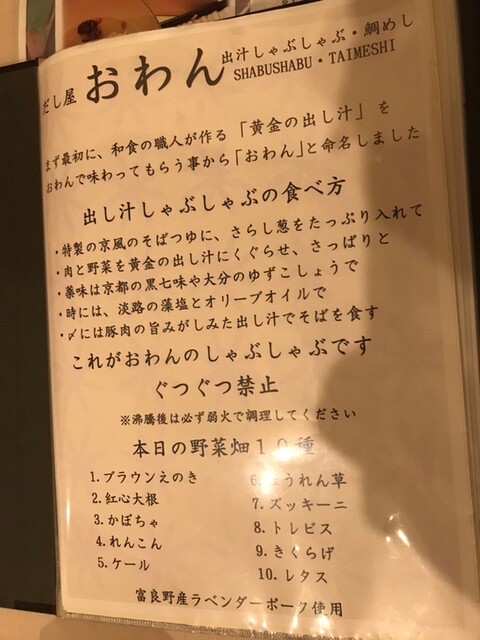 だし屋 おわん 出汁しゃぶしゃぶ・鯛めし
SHABUSHABU・TAIMESHI
まず最初に、和食の職人が作る「黄金の出し汁」を
おわんで味わってもらう事から「おわん」と命名しました
出し汁しゃぶしゃぶの食べ方
・特製の京風のそばつゆに、さらし葱をたっぷり入れて
・肉と野菜を黄金の出し汁にくぐらせ、さっぱりと
・薬味は京都の黒七味や大分のゆずこしょうで
・時には、淡路の藻塩とオリーブオイルで
・〆には豚肉の旨みがしみた出し汁でそばを食す
これがおわんのしゃぶしゃぶです
ぐつぐつ禁止
※沸騰後は必ず弱火で調理してください
本日の野菜畑10種
1.ブラウンえのき
2.紅心大根
3.かぼちゃ
4.れんこん
5.ケール
6.ほうれん草
7.ズッキーニ
8.トレビス
9.きくらげ
10.レタス
富良野産ラベンダーポーク使用